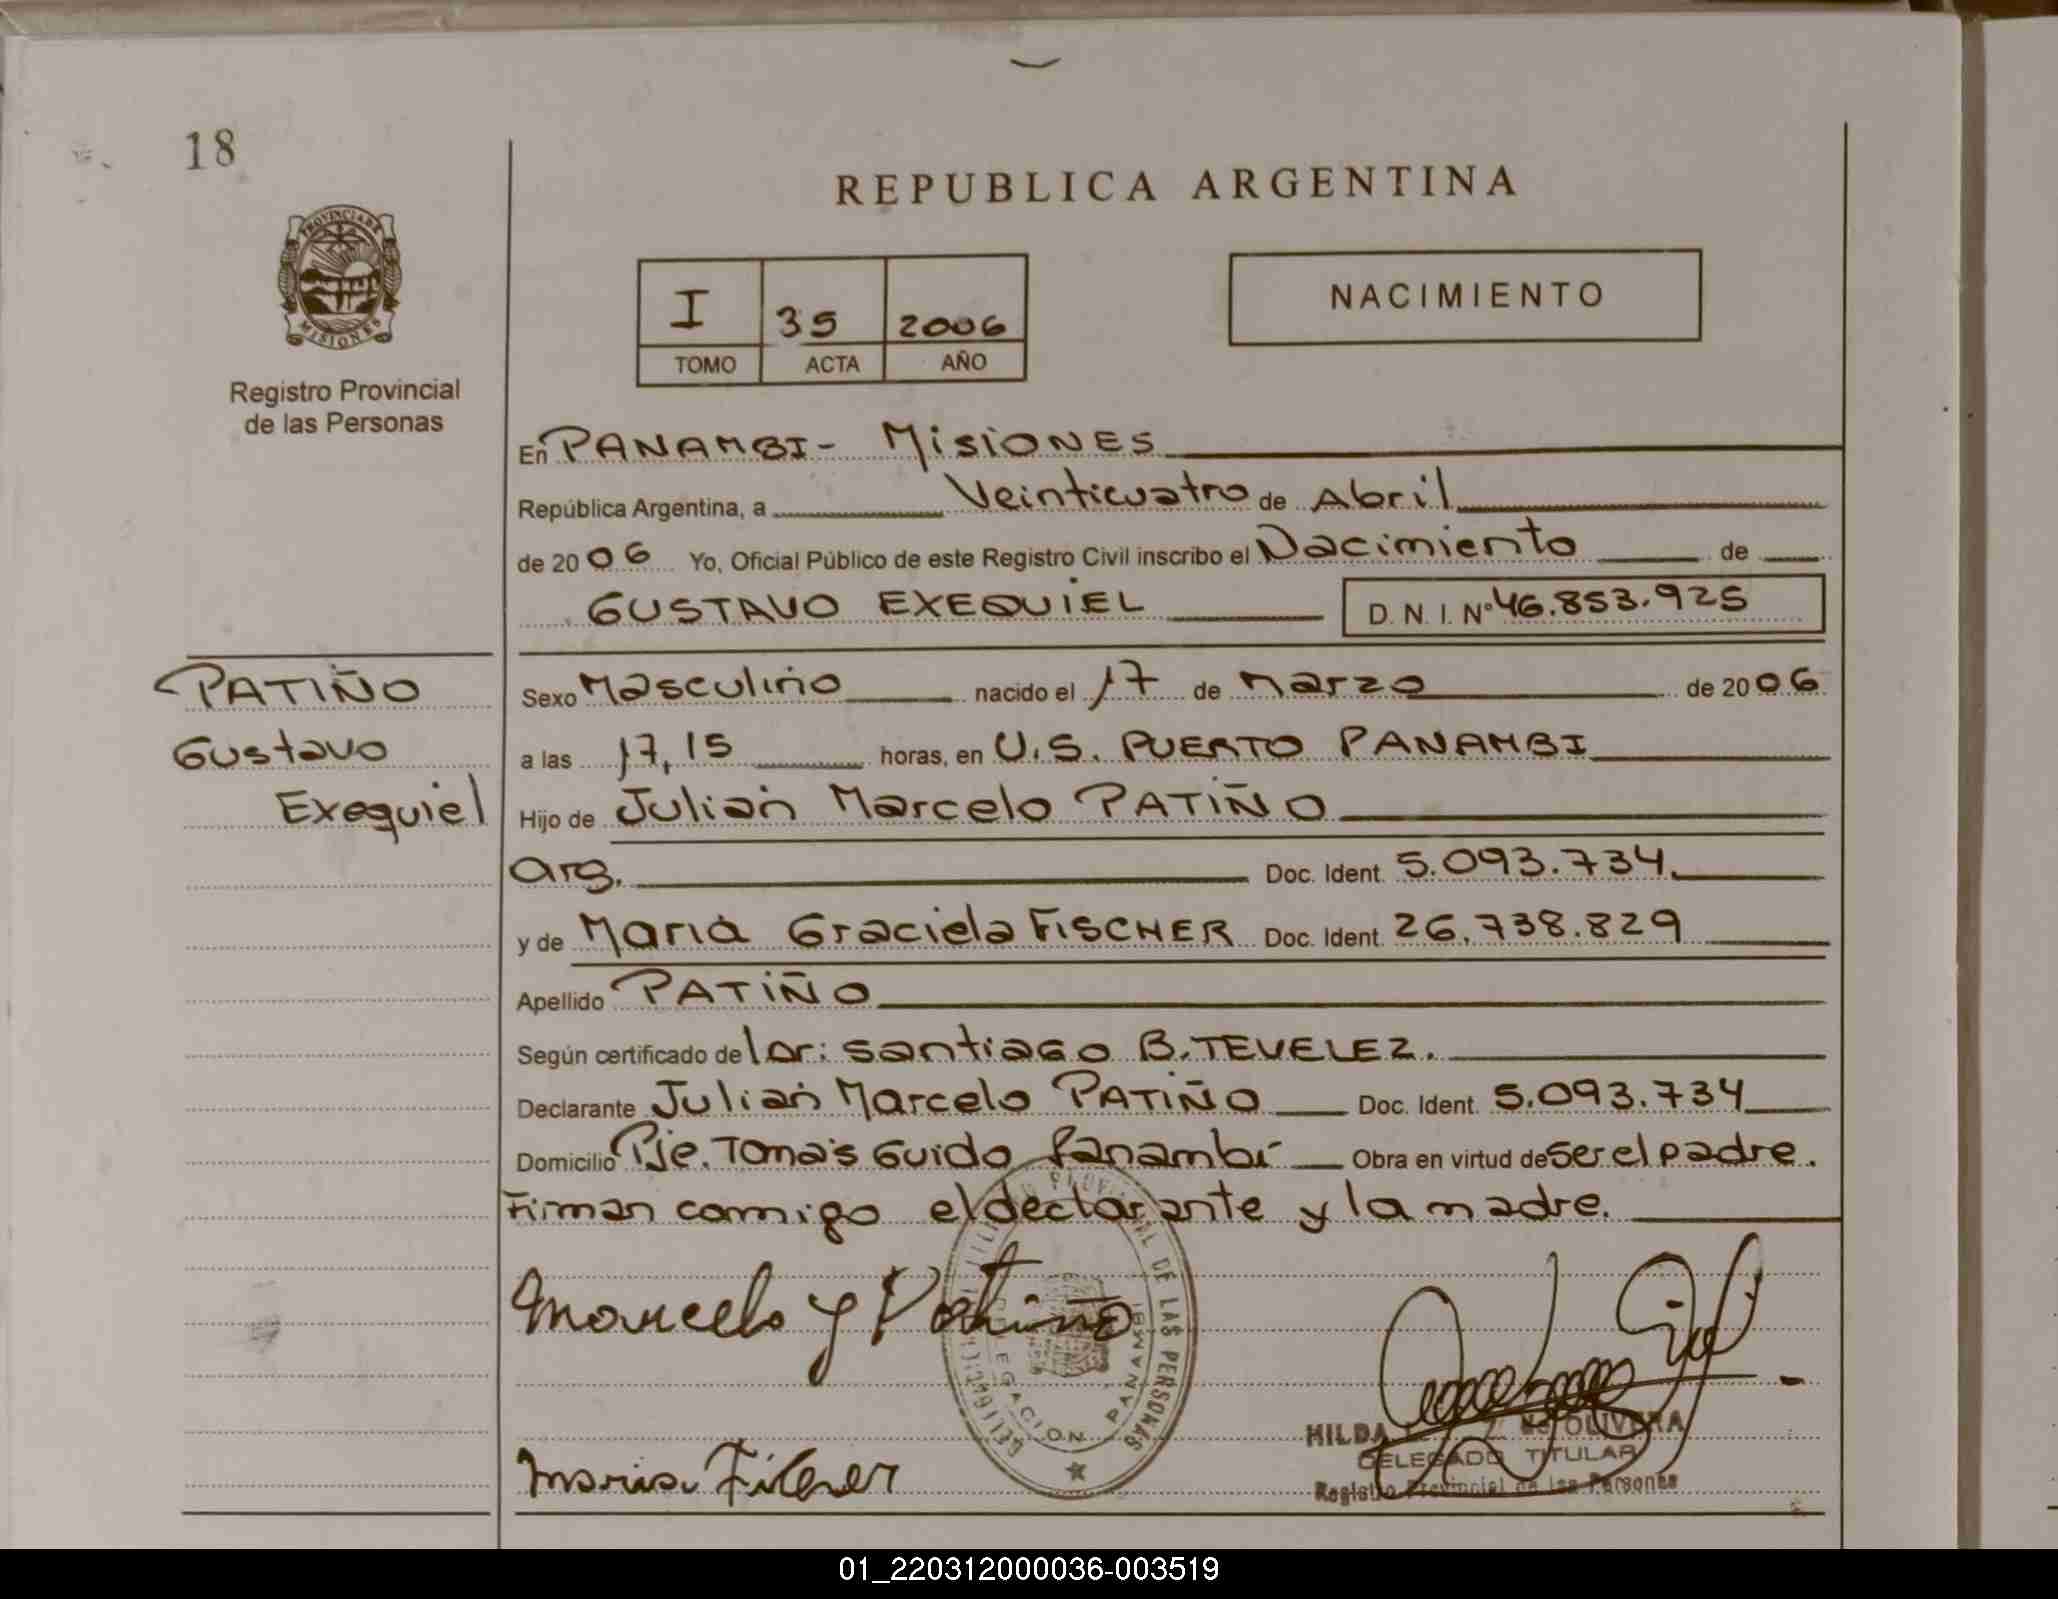 18
PROVINCIA DE
MISIONES
Registro Provincial
de las Personas
REPUBLICA ARGENTINA
I 35 2006
TOMO ACTA AÑO
NACIMIENTO
En PANAMBI - MISIONES
República Argentina, a Veinticuatro de Abril
de 2006 Yo, Oficial Público de este Registro Civil inscribo el Nacimiento de
GUSTAVO EXEQUIEL D. N. I. Nº 46.853.925
PATIÑO
Gustavo
Exequiel
Sexo Masculino nacido el 17 de Marzo de 2006
a las 17,15 horas, en U.S. PUERTO PANAMBI
Hijo de Julian Marcelo PATIÑO
Arg. Doc. Ident. 5.093.734
y de Maria Graciela FISCHER Doc. Ident. 26.738.829
Apellido PATIÑO
Según certificado de Santiago B. TEVELEZ.
Declarante Julian Marcelo PATIÑO Doc. Ident. 5.093.734
Domicilio Pje. Tomás Guido Panambí Obra en virtud de ser el padre.
Firman conmigo el declarante y la madre.
Marcelo y Patiño
PROVINCIAL DE LAS PERSONAS
DELEGACION PANAMBI
HILDA de OLIVERA
DELEGADO TITULAR
Registro Provincial de las Personas
Maria
01_220312000036-003519